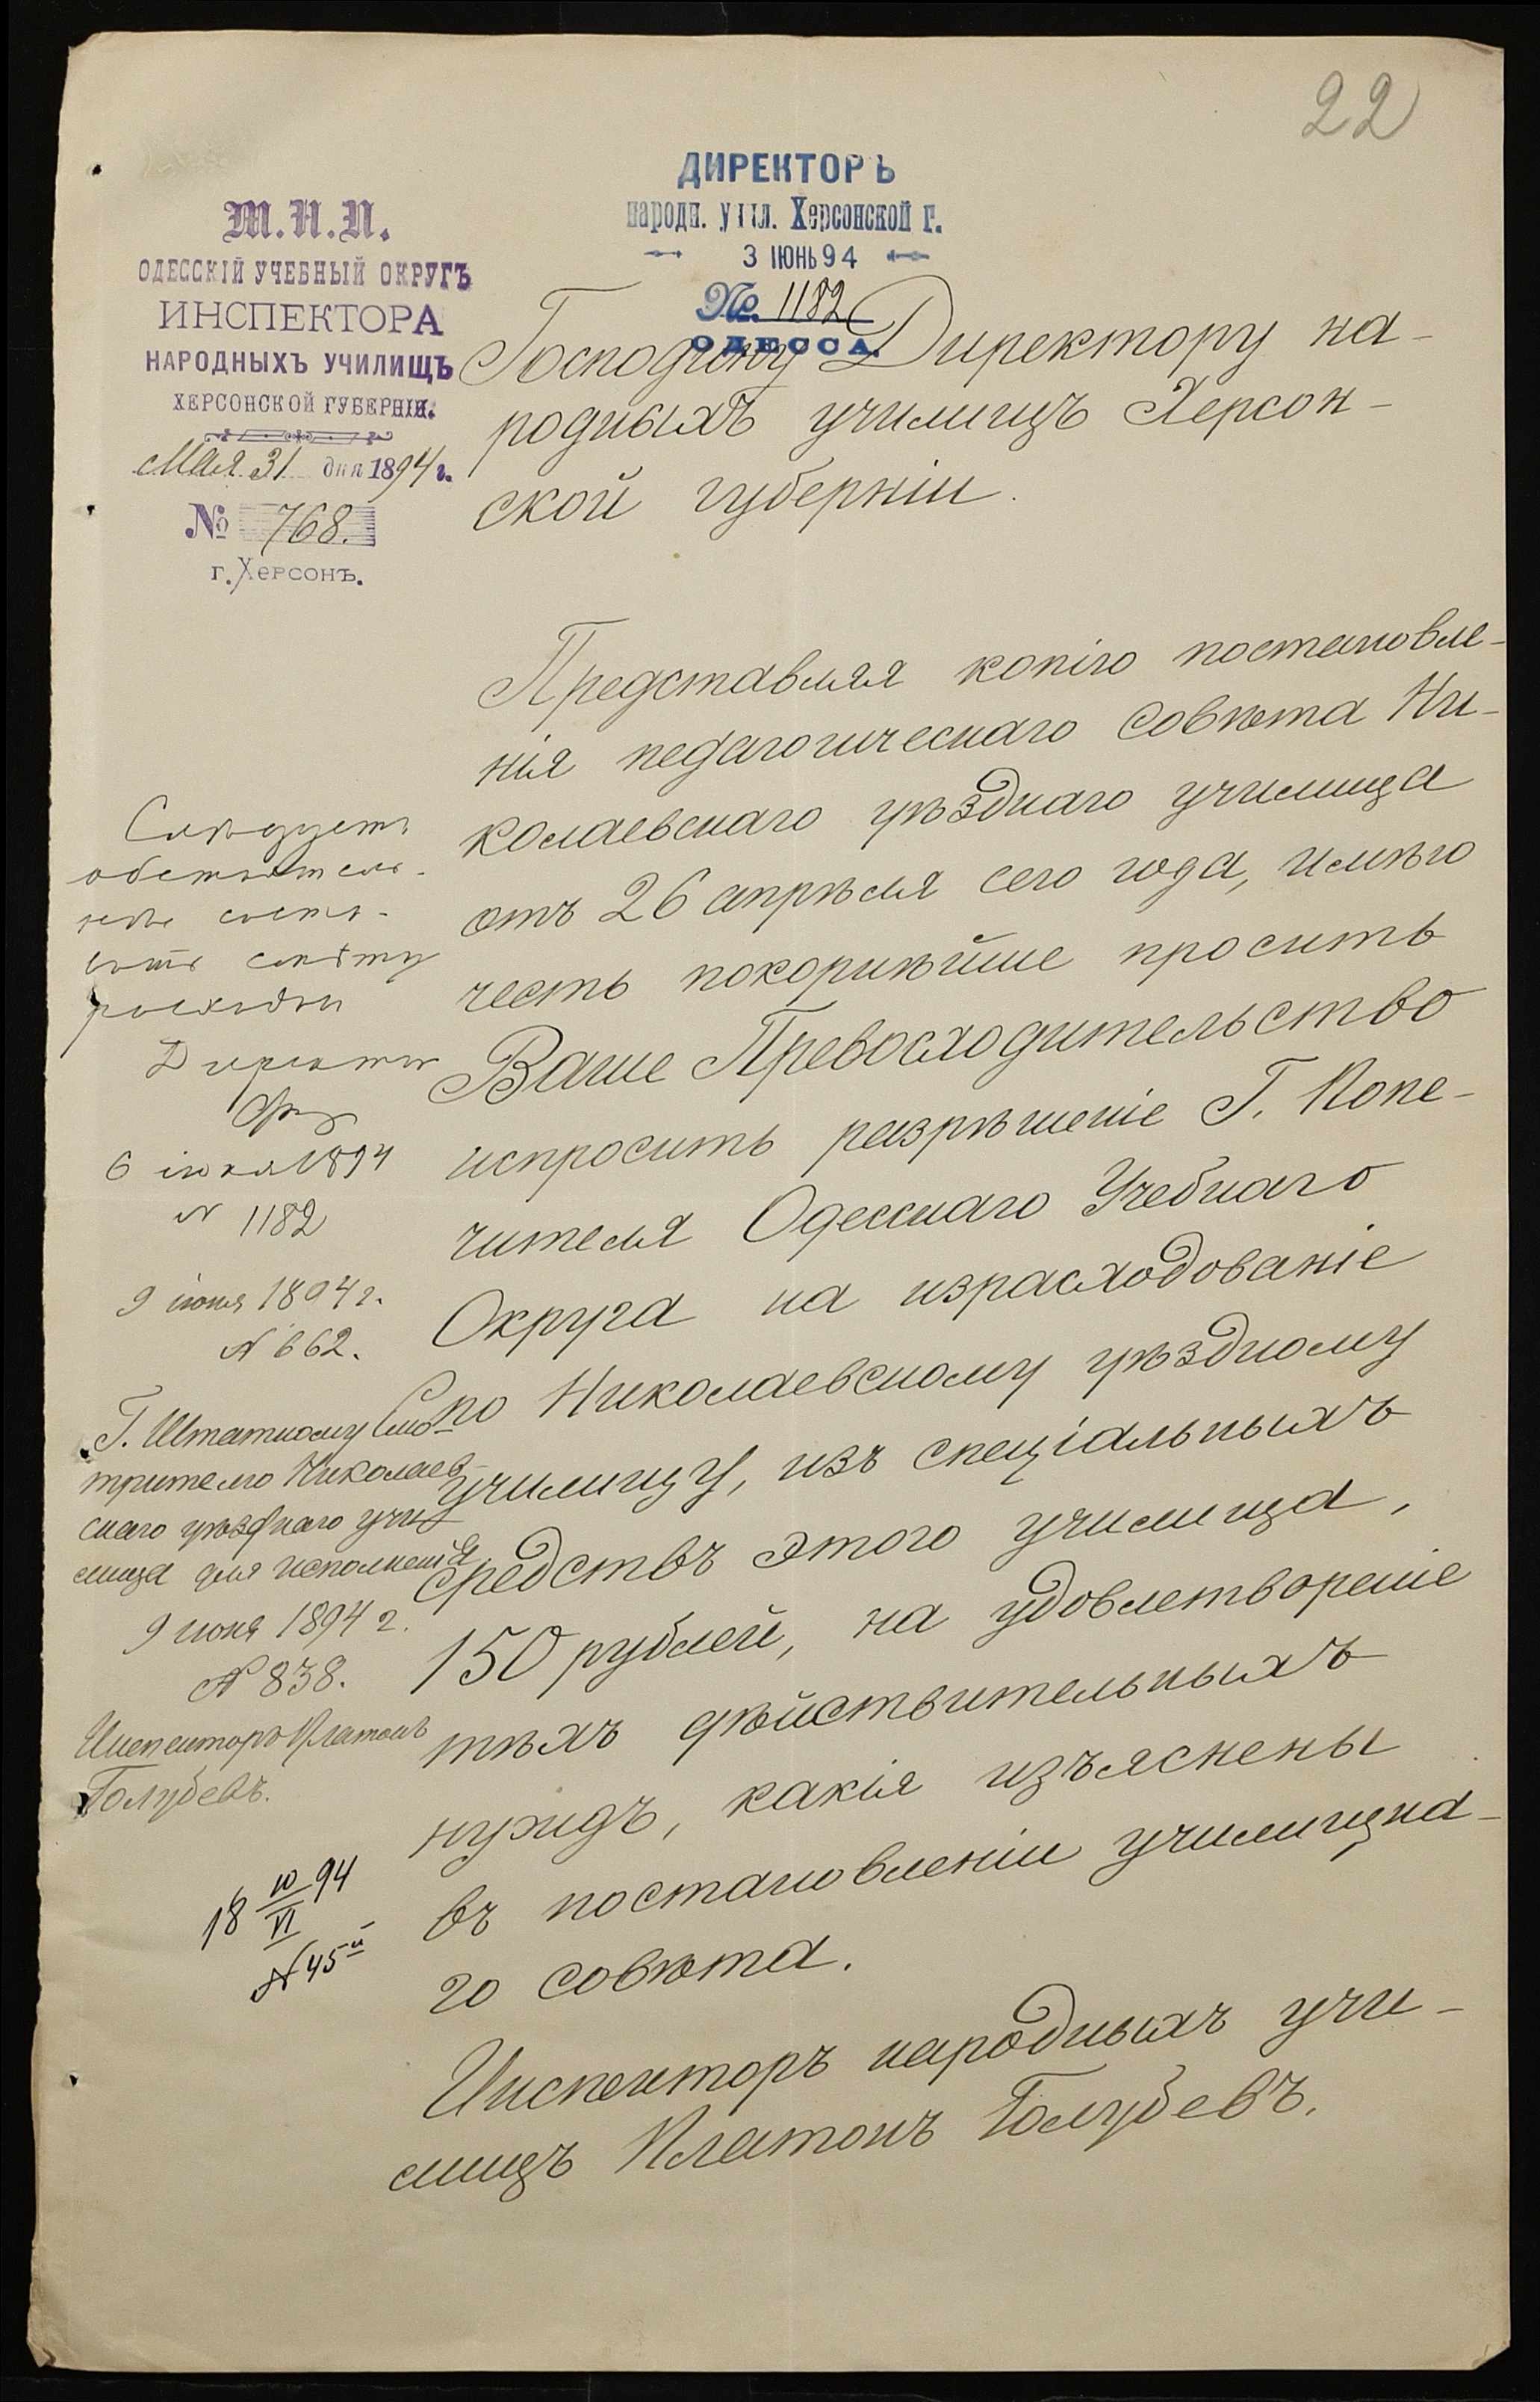 22
М.Н.П.
ОДЕССКІЙ УЧЕБНЫЙ ОКРУГЪ
ИНСПЕКТОРА
НАРОДНЫХЪ УЧИЛИЩЪ
ХЕРСОНСКОЙ ГУБЕРНІИ.
Мая 31 дня 1894 г.
№ 768.
г. Херсонъ.
ДИРЕКТОРЪ
народн. учил. Херсонской г.
3 ІЮНЬ 94
№ 1182
ОДЕССА.
Господину Директору на-
родныхъ училищъ Херсон-
ской губерніи.
Представляя копію постановле-
нія педагогическаго совѣта Ни-
колаевскаго уѣзднаго училища
отъ 26 апрѣля сего года, имѣю
честь покорнѣйше просить
Ваше Превосходительство
испросить разрѣшеніе Г. Попе-
чителя Одесскаго Учебнаго
Округа на израсходованіе
по Николаевскому уѣздному
училищу, изъ спеціальныхъ
средствъ этого училища,
150 рублей, на удовлетвореніе
тѣхъ дѣйствительныхъ
нуждъ, какія изъяснены
въ постановленіи училищна-
го совѣта.
Инспекторъ народныхъ учи-
лищъ Платонъ Голубевъ.
Слѣдуетъ
обстоятель-
нѣе соста-
вить смѣту
расхода
Директоръ
6 іюня 1894
N 1182
9 іюня 1894 г.
N 662.
Г. Штатному Смо-
трителю Николаев-
скаго уѣзднаго учи-
лища для исполненія
9 июня 1894 г.
N 838.
Инспекторъ Платонъ
Голубевъ.
18 10/VI 94
N 45й